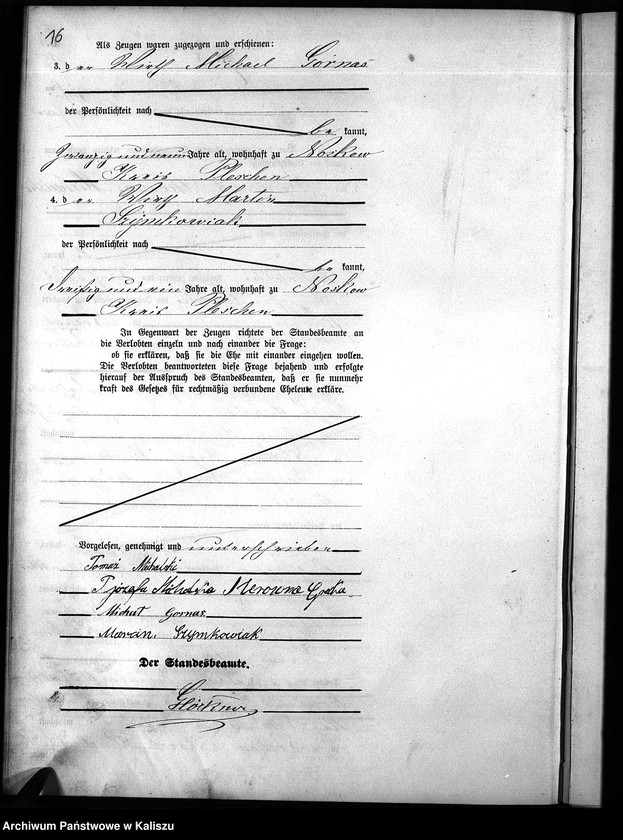 16
Als Zeugen waren zugezogen und erschienen:
3. der Wirth Michael Górnas
der Persönlichkeit nach
be kannt,
Zwanzig und neun Jahre alt, wohnhaft zu Noskow
Kreis Pleschen
4. der Wirth Martin
Szymkowiak
der Persönlichkeit nach
be kannt,
Dreißig und ein Jahre alt, wohnhaft zu Noskow
Kreis Pleschen
In Gegenwart der Zeugen richtete der Standesbeamte an
die Verlobten einzeln und nach einander die Frage:
ob sie erklären, daß sie die Ehe mit einander eingehen wollen.
Die Verlobten beantworteten diese Frage bejahend und erfolgte
hierauf der Ausspruch des Standesbeamten, daß er sie nunmehr
kraft des Gesetzes für rechtmäßig verbundene Eheleute erkläre.
Vorgelesen, genehmigt und unterschrieben
Tomaź Michalski
Michał Gornas
Marcin Szymkowiak
Der Standesbeamte.
Glöckner
Archiwum Państwowe w Kaliszu